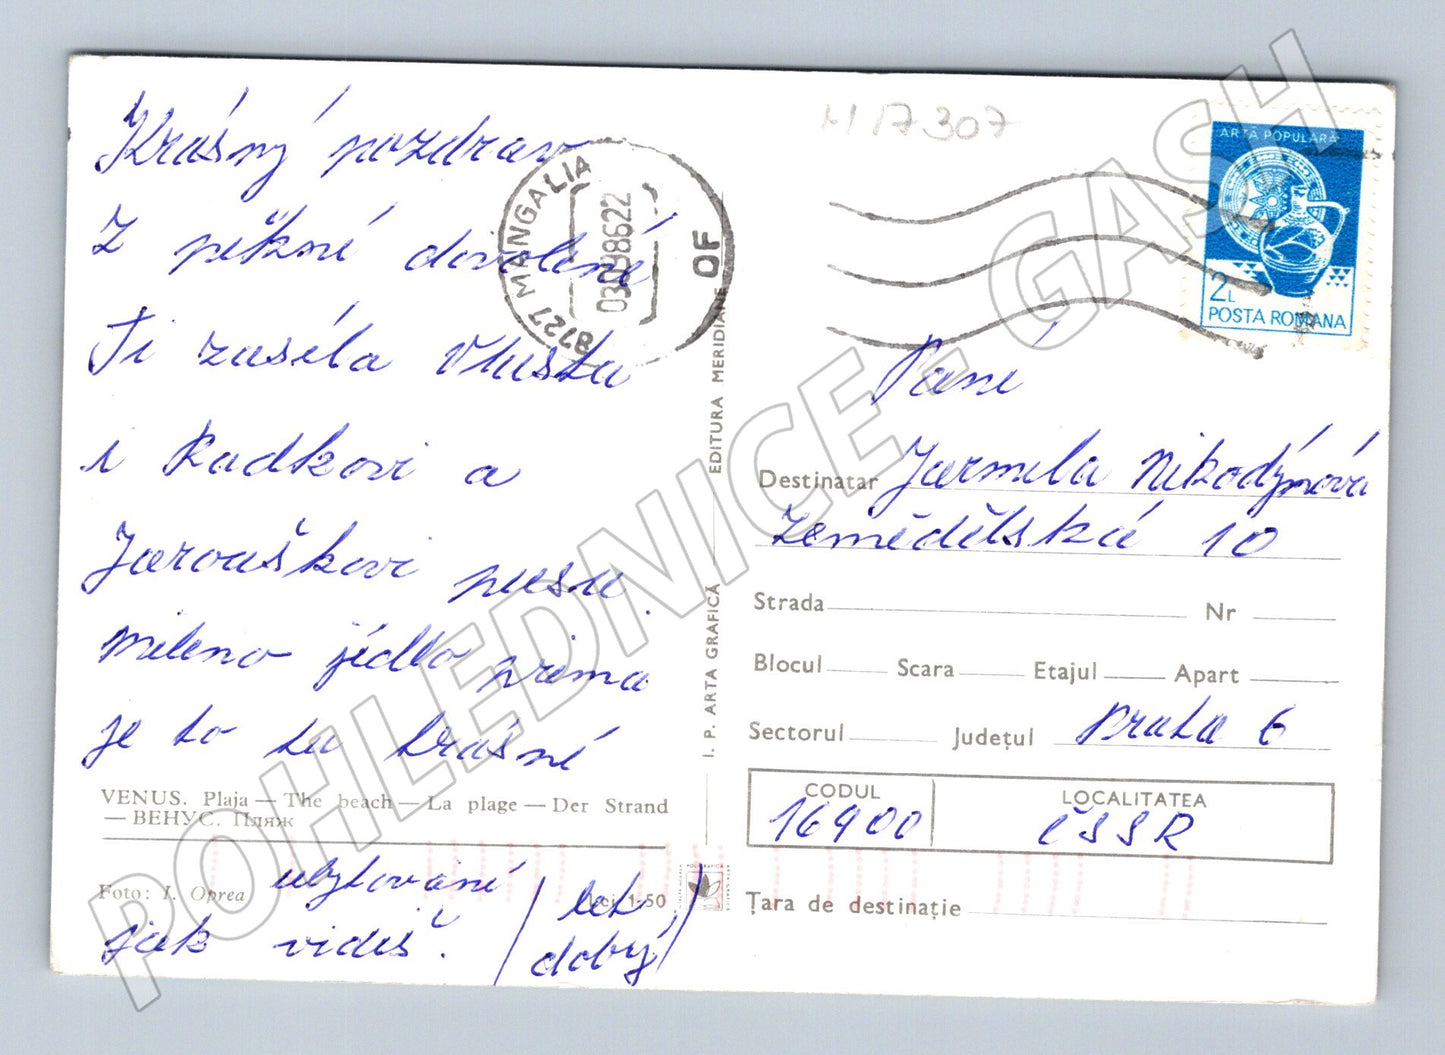 Krásný pozdrav
z pěkné dovolené
Ti zaséla Vlasta
i Radkovi a
Jarouškovi pusu.
Mileno jídlo prima
je to tu krásné
ubytování
jak vidíš.
(let
dobrý)
VENUS. Plaja — The beach — La plage — Der Strand
— ВЕНУС. Пляж
Foto: I. Oprea
Lei 1-50
EDITURA MERIDIANE
I. P. ARTA GRAFICĂ
8727 MANGALIA
OF
M 17307
ARTĂ POPULARĂ
2L
POSTA ROMANA
Paní
Destinatar Jarmila Nikodýmová
Zemědělská 10
Strada Nr
Blocul Scara Etajul Apart
Sectorul Județul Praha 6
CODUL LOCALITATEA
16900 ČSSR
Țara de destinație
POHLEDNICE - GASH